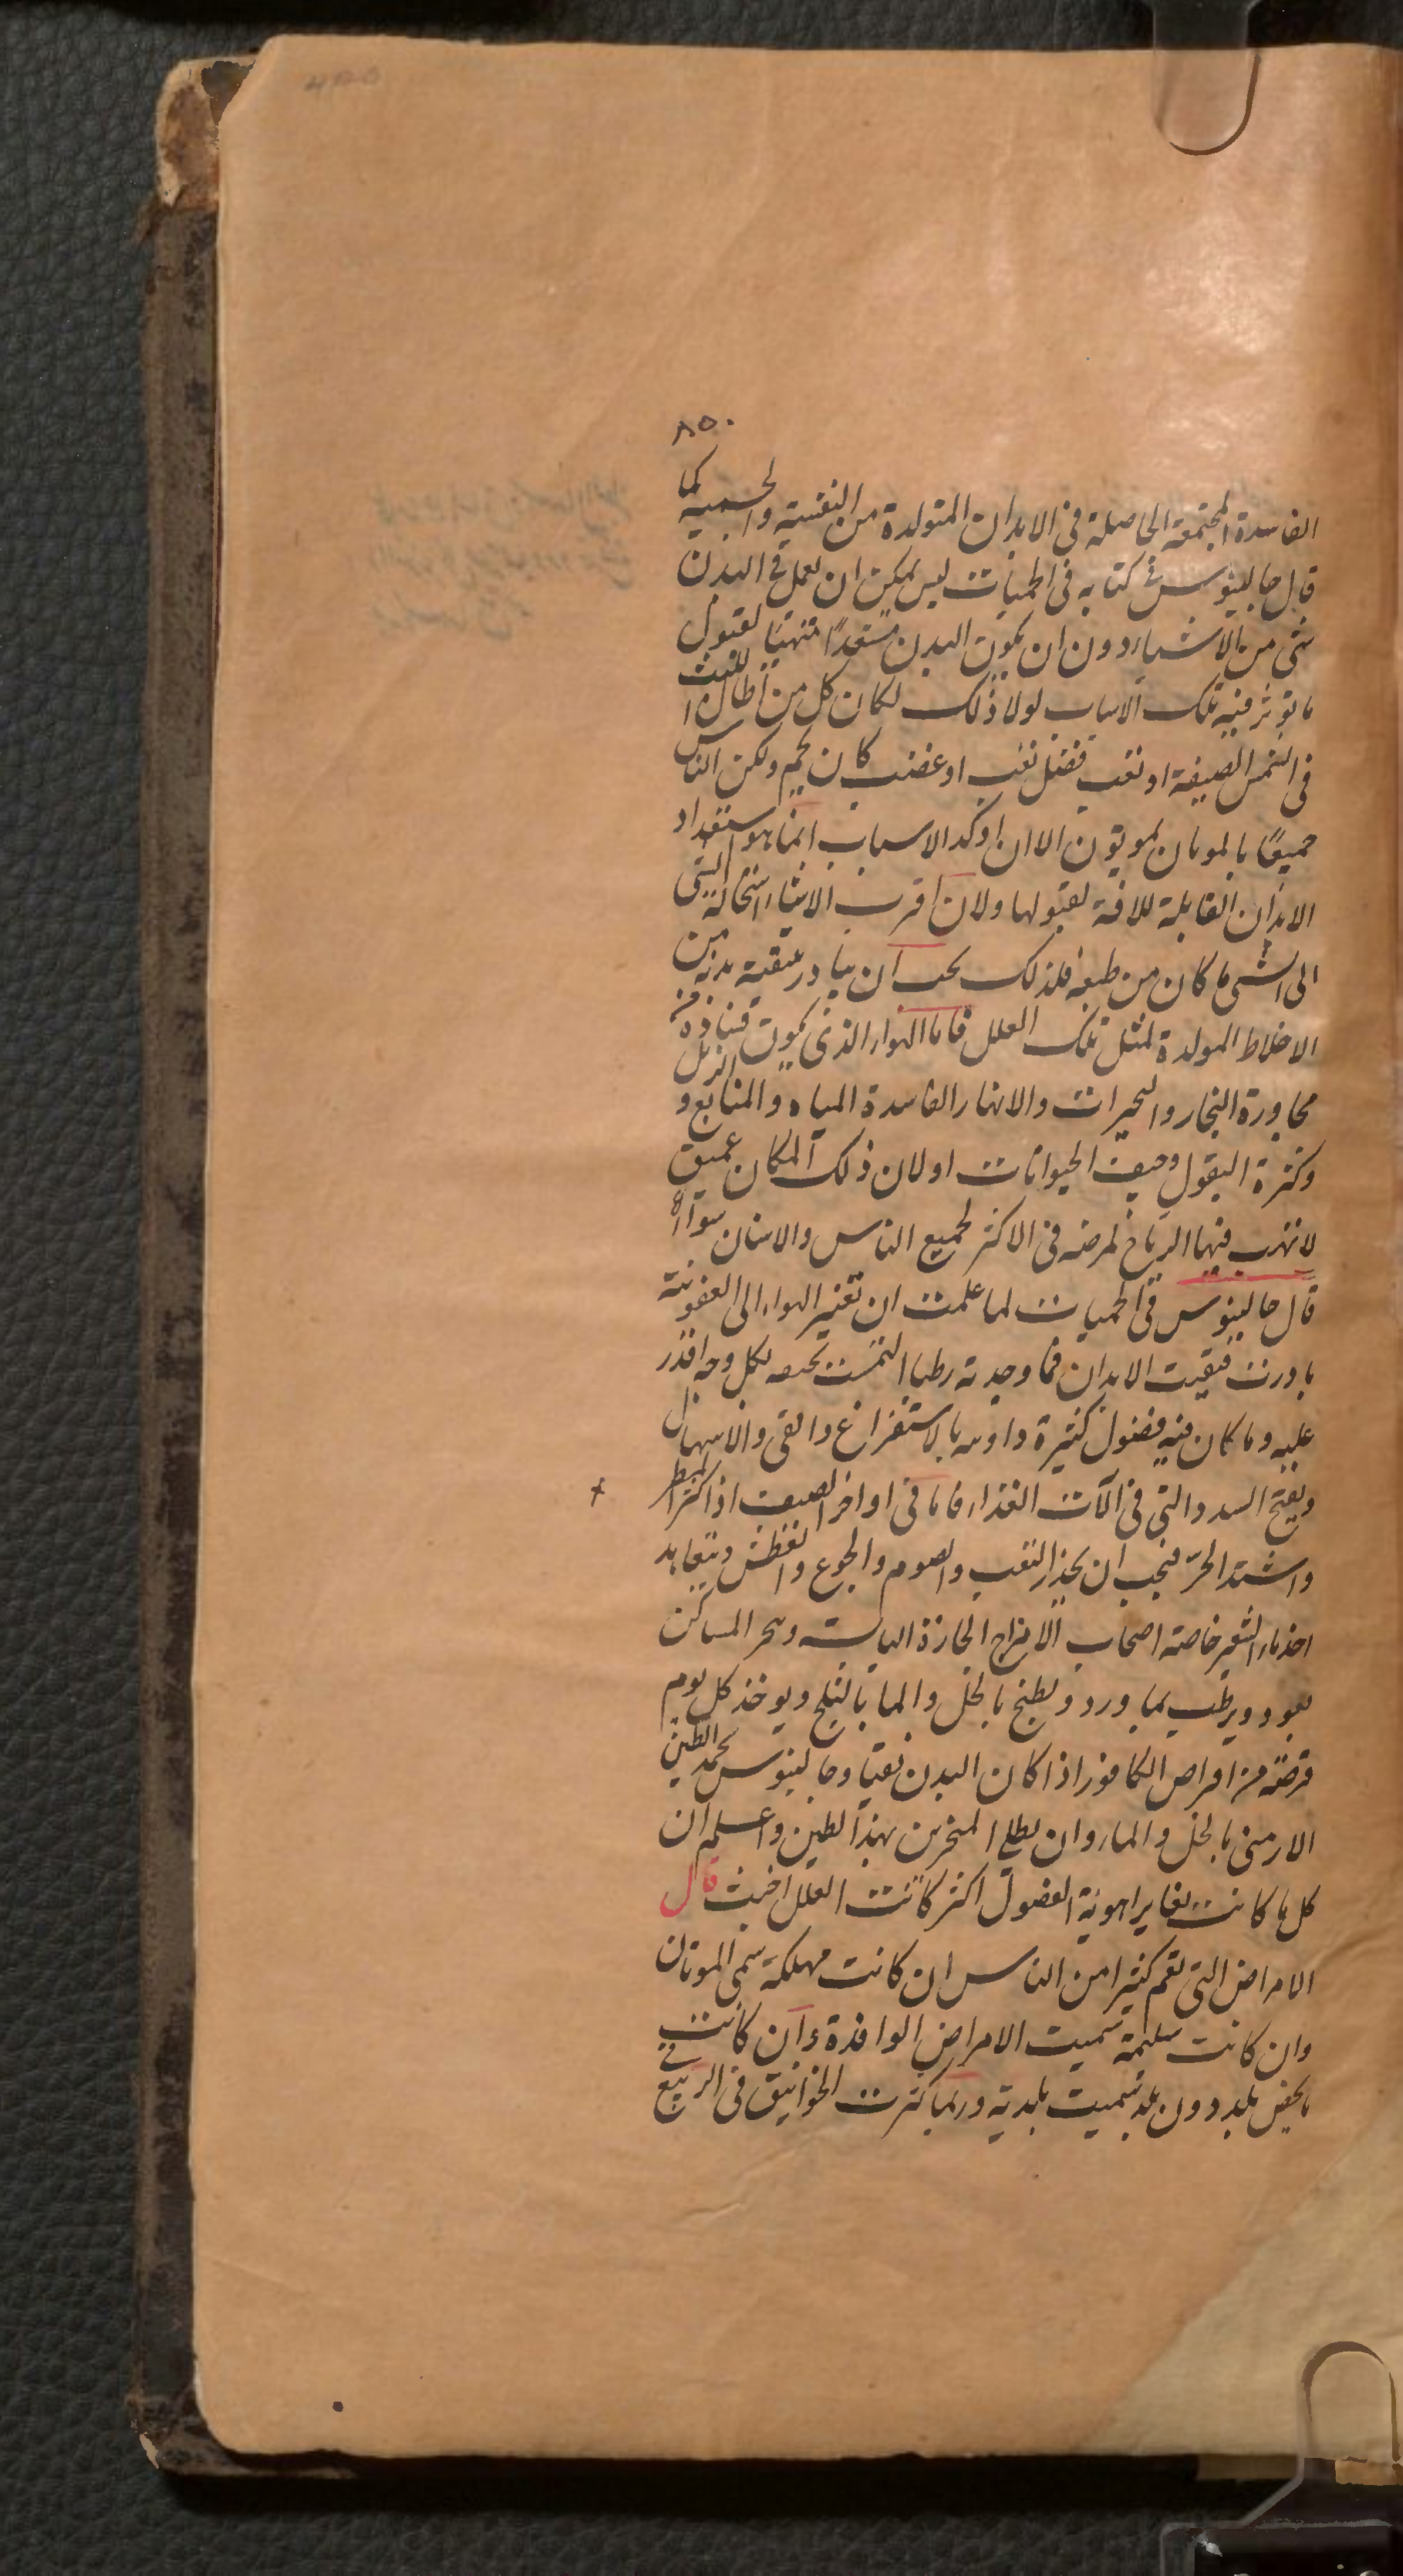 ٨٥٠
الفاسدة المجتمعة الحاصلة فى الابدان المتولدة من النفسية والجسمية كما
قال جالينوس فى كتابه فى الحميات ليس يمكن ان يعمل فى البدن
شئ من الاشياء دون ان يكون البدن مستعدا متهيئا لقبول
ما توثر فيه تلك الاسباب لولا ذلك لكان كل من اطال اللبث
فى الشمس الصيفة او تعب فضل تعب او غضب كان يحم ولكن الناس
جميعًا بالموتان يموتون الا ان اوكد الاسباب انما هو استعداد
الابدان القابلة للافة لقبولها ولان اقرب الاشياء استحالة التى
الى الشئ ما كان من طبعه فلذلك يجب ان يبادر بتنقية بدنه من
الاخلاط المولدة لمثل تلك العلل فاما الهواء الذى يكون فساده من
مجاورة البحار والبحيرات والانهار الفاسدة المياه والمنابع و الزبل
وكثرة البقول وجيف الحيوانات او لان ذلك المكان عميق
لا تهب فيها الرياح لمرضه فى الاكثر لجميع الناس والاسنان سواء
قال جالينوس فى الحميات لما علمت ان تغير الهواء الى العفونة
بادرت فنقيت الابدان فما وجدته رطبا التمست تجفيفه بكل وجه اقدر
عليه وما كان فيه فضول كثيرة داويته بالاستفراغ والقى والاسهال
وبفتح السدد التى فى الآت الغذاء فاما فى اواخر الصيف اذا كثر المطر
واشتد الحر فيجب ان يحذر التعب والصوم والجوع والعطش ويتعاهد
اخذ ماء الشعير خاصة اصحاب الامزاج الحارة اليابسة وبخر المساكن
بعود ويرطب بماورد ويطبخ بالخل والماء بالثلج ويوخذ كل يوم
قرصة من اقراص الكافور اذا كان البدن نقيا وجالينوس يحمد الطين
الارمنى بالخل والماء وان يطلى المنخرين بهذا الطين واعلم ان
كل ما كانت تغاير اهوية الفصول اكثر كانت العلل اخبث قال
الامراض التى تعم كثيرا من الناس ان كانت مهلكة سمى الموتان
وان كانت سليمة سميت الامراض الوافدة وان كانت
ما يخص بلد دون بلد سميت بلدية وربما كثرت الخوانيق فى الربيع